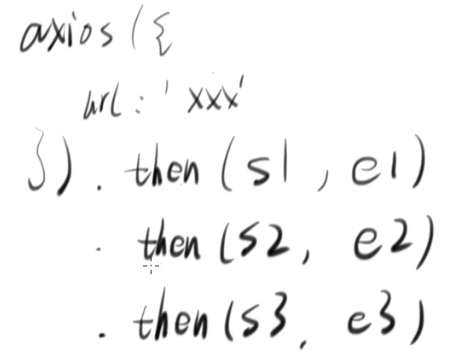 axios({
url: 'xxx'
}).then(s1, e1)
.then(s2, e2)
.then(s3, e3)